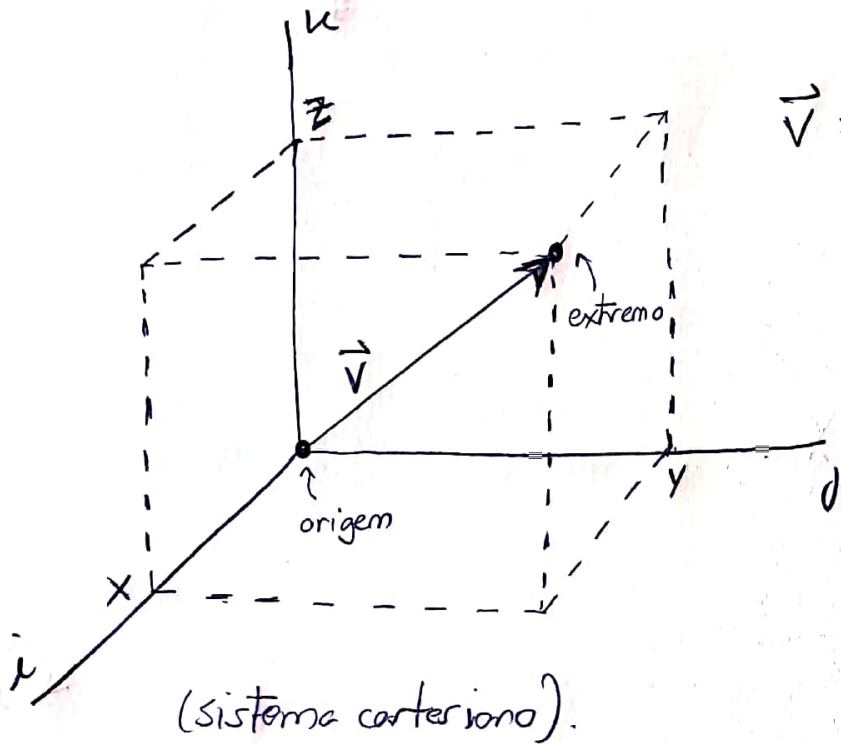 k
z
V⃗ :
extremo
V⃗
y
j
origem
x
i
(sistema cartesiano).